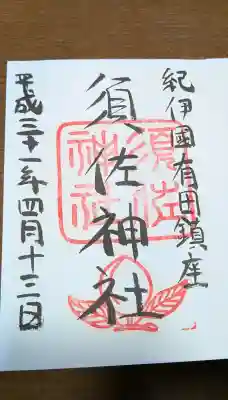 紀伊國有田鎮座
須佐神社
須佐神社
平成三十一年四月十三日